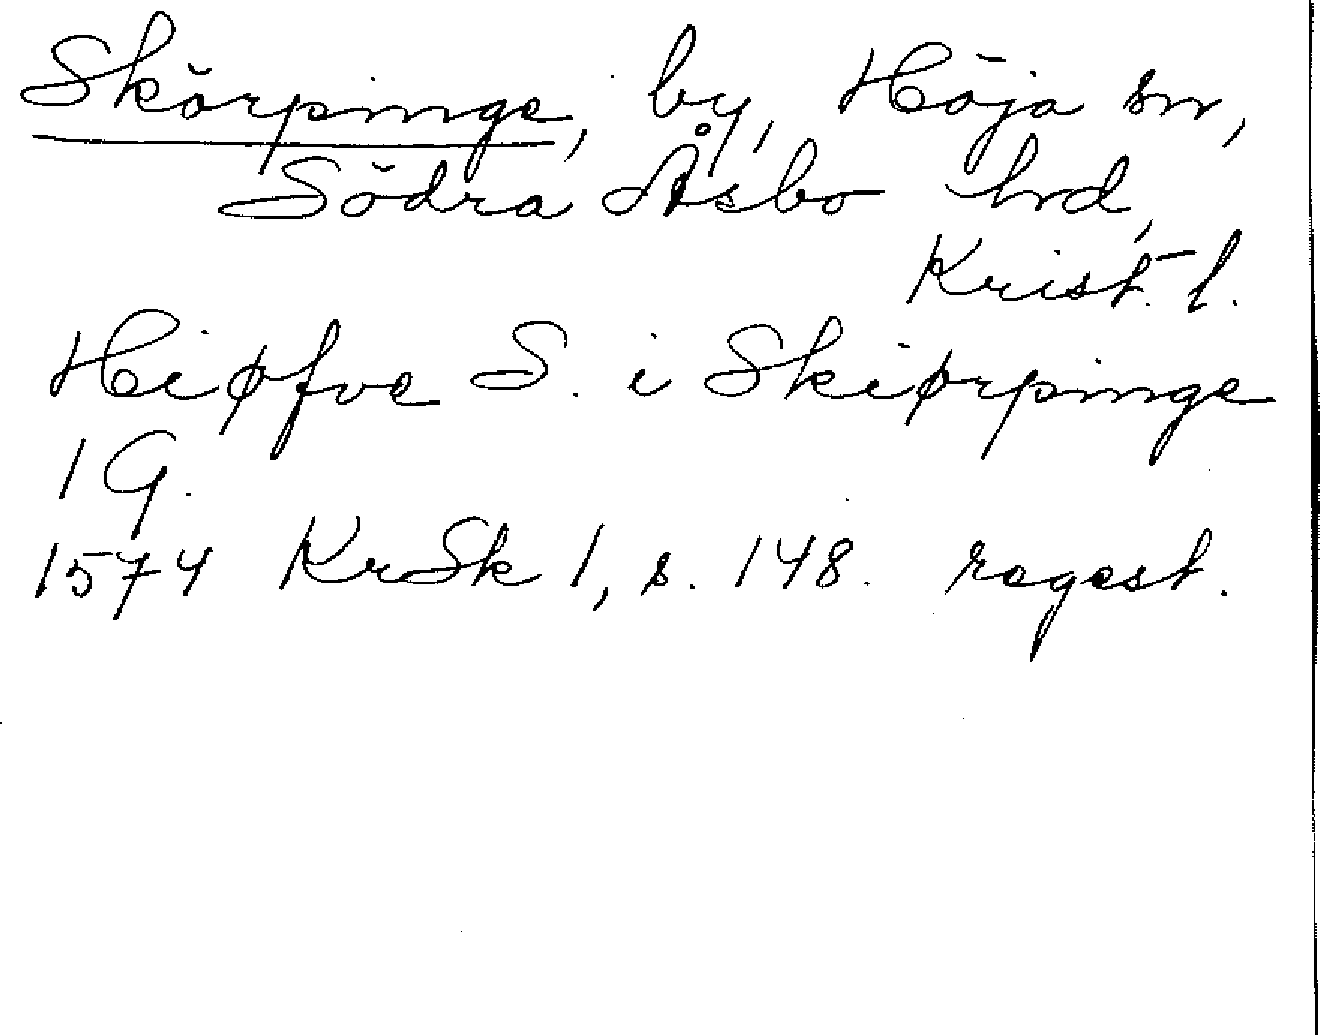 Skörpinge, by, Höja sn,
Södra Åsbo hrd,
Krist. l.
Hiøfve S. i Skiørpinge
1 G.
1574 KrSk 1, s. 148. regest.